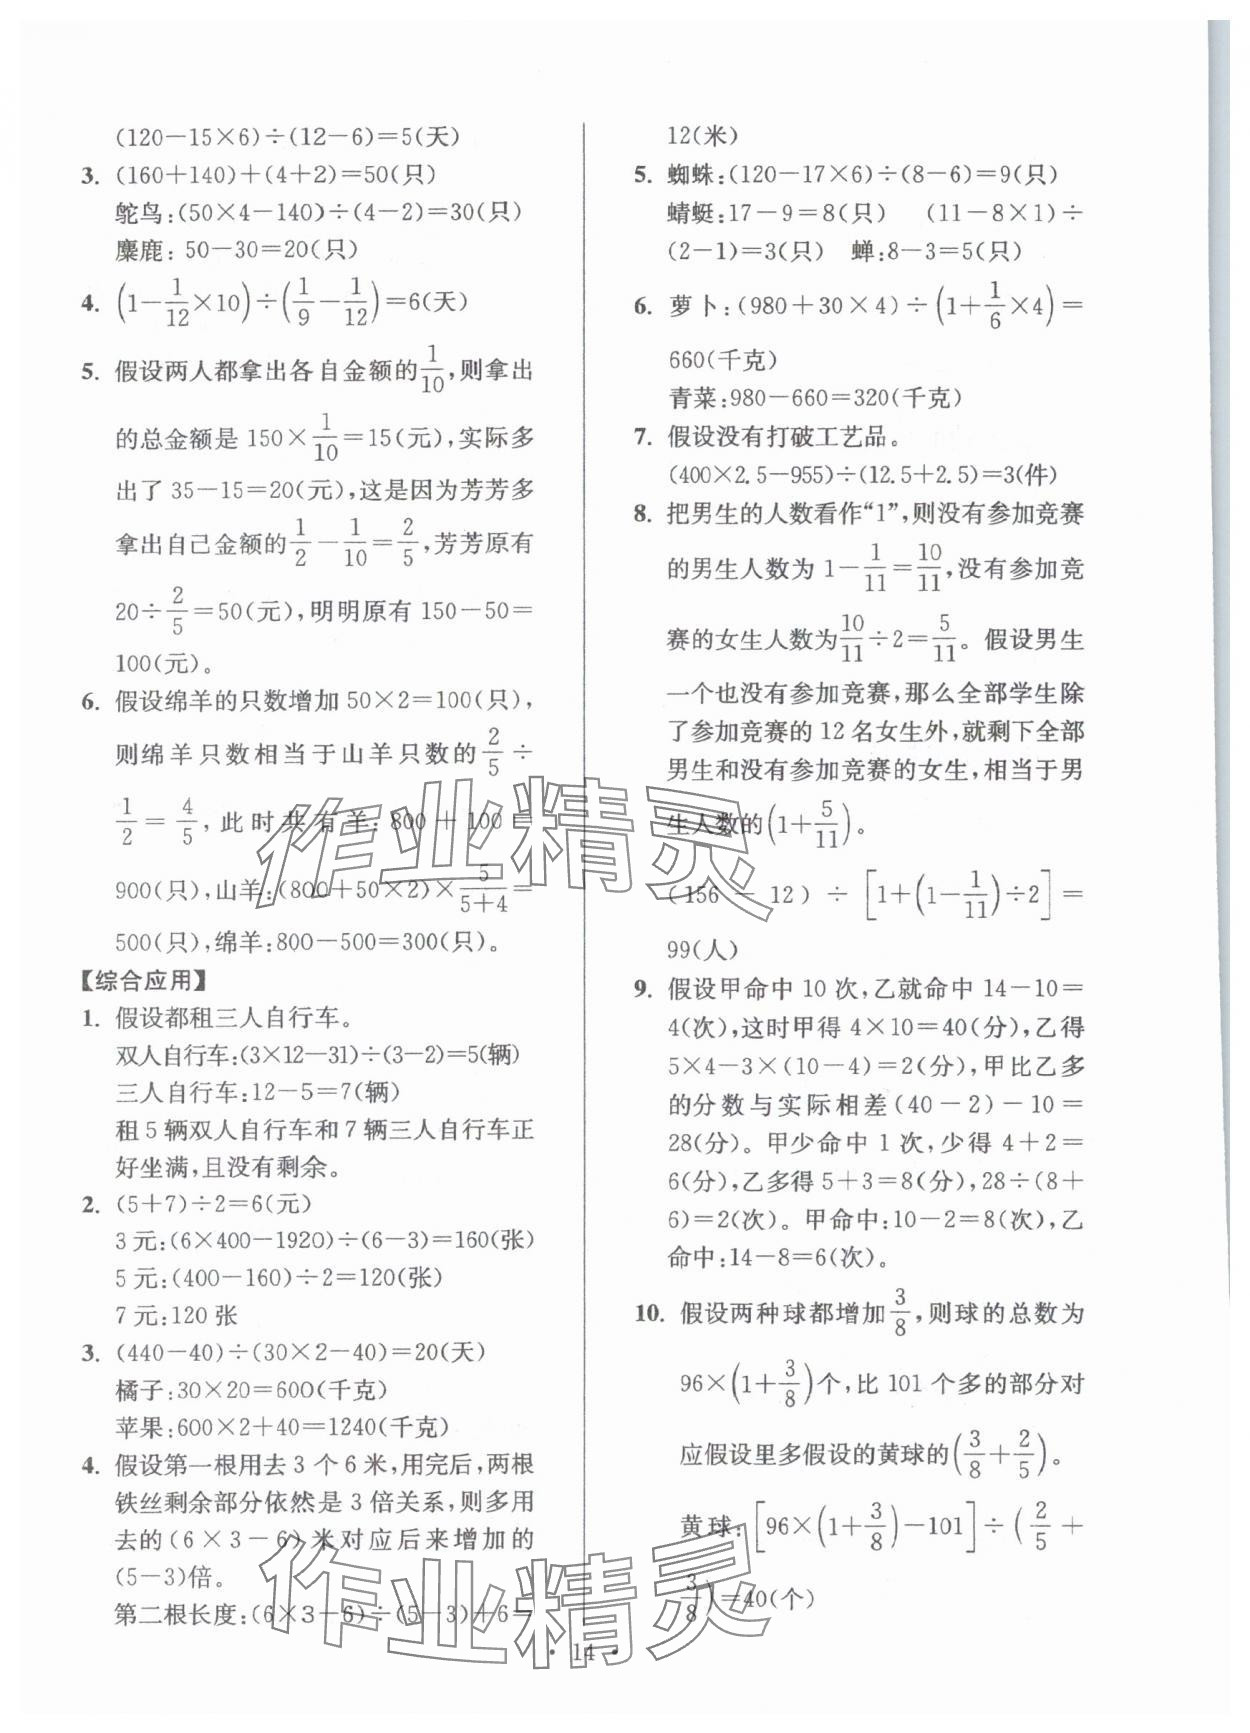 (120-15×6)÷(12-6)=5(天)
3. (160+140)+(4+2)=50(只)
鸵鸟:(50×4-140)÷(4-2)=30(只)
麋鹿: 50-30=20(只)
4. (1-1/12×10)÷(1/9-1/12)=6(天)
5. 假设两人都拿出各自金额的1/10,则拿出
的总金额是 150×1/10=15(元),实际多
出了 35-15=20(元),这是因为芳芳多
拿出自己金额的1/2-1/10=2/5,芳芳原有
20÷2/5=50(元),明明原有 150-50=
100(元)。
6. 假设绵羊的只数增加 50×2=100(只),
则绵羊只数相当于山羊只数的2/5÷
1/2=4/5,此时共有羊:800+100=
900(只),山羊:(800+50×2)×5/(5+4)=
500(只),绵羊:800-500=300(只)。
【综合应用】
1. 假设都租三人自行车。
双人自行车:(3×12-31)÷(3-2)=5(辆)
三人自行车:12-5=7(辆)
租 5 辆双人自行车和 7 辆三人自行车正
好坐满,且没有剩余。
2. (5+7)÷2=6(元)
3 元:(6×400-1920)÷(6-3)=160(张)
5 元:(400-160)÷2=120(张)
7 元:120 张
3. (440-40)÷(30×2-40)=20(天)
橘子:30×20=600(千克)
苹果:600×2+40=1240(千克)
4. 假设第一根用去 3 个 6 米,用完后,两根
铁丝剩余部分依然是 3 倍关系,则多用
去的(6×3-6)米对应后来增加的
(5-3)倍。
第二根长度:(6×3-6)÷(5-3)+6=
12(米)
5. 蜘蛛:(120-17×6)÷(8-6)=9(只)
蜻蜓:17-9=8(只) (11-8×1)÷
(2-1)=3(只) 蝉:8-3=5(只)
6. 萝卜:(980+30×4)÷(1+1/6×4)=
660(千克)
青菜:980-660=320(千克)
7. 假设没有打破工艺品。
(400×2.5-955)÷(12.5+2.5)=3(件)
8. 把男生的人数看作“1”,则没有参加竞赛
的男生人数为 1-1/11=10/11,没有参加竞
赛的女生人数为10/11÷2=5/11。假设男生
一个也没有参加竞赛,那么全部学生除
了参加竞赛的 12 名女生外,就剩下全部
男生和没有参加竞赛的女生,相当于男
生人数的(1+5/11)。
(156-12)÷[1+(1-1/11)÷2]=
99(人)
9. 假设甲命中 10 次,乙就命中 14-10=
4(次),这时甲得 4×10=40(分),乙得
5×4-3×(10-4)=2(分),甲比乙多
的分数与实际相差(40-2)-10=
28(分)。甲少命中 1 次,少得 4+2=
6(分),乙多得 5+3=8(分),28÷(8+
6)=2(次)。甲命中:10-2=8(次),乙
命中:14-8=6(次)。
10. 假设两种球都增加3/8,则球的总数为
96×(1+3/8)个,比 101 个多的部分对
应假设里多假设的黄球的(3/8+2/5)。
黄球:[96×(1+3/8)-101]÷(2/5+
3/8)=40(个)
• 14 •
作业精灵
作业精灵